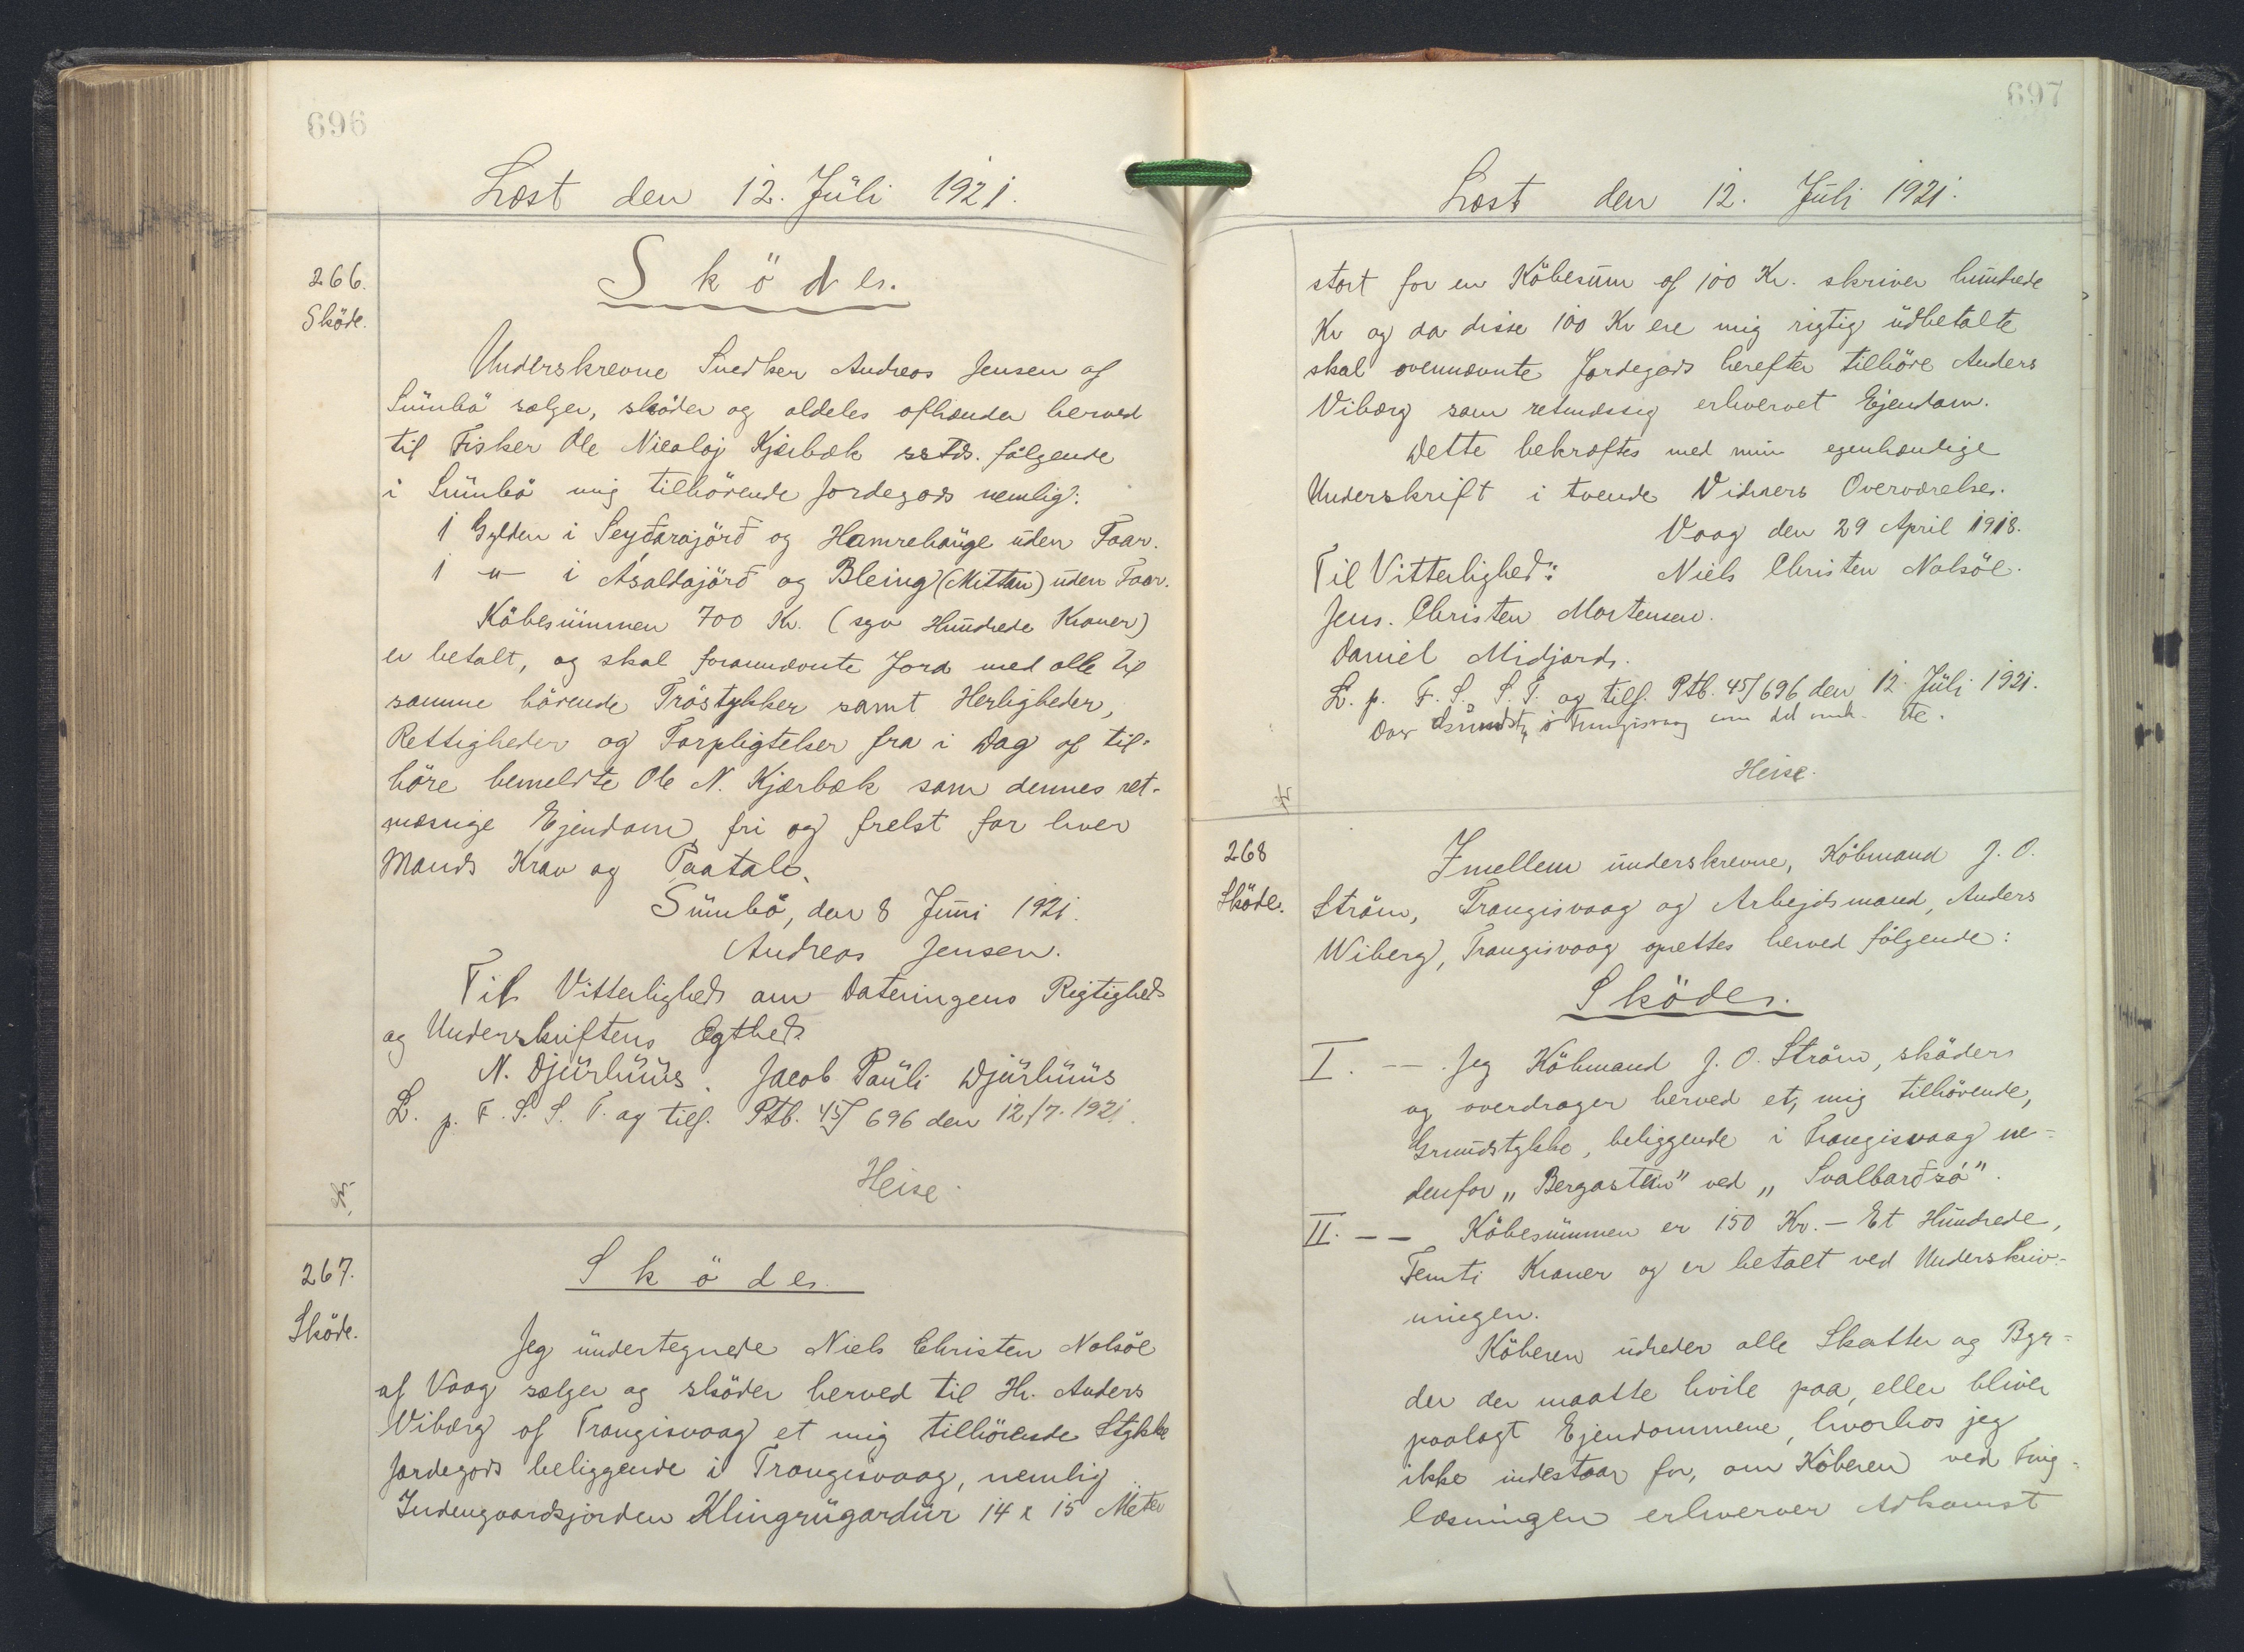 696
Læst den 12. Júli 1921.
266.
Sköde.
Sködes.
Underskrevne Snedker Andreas Jensen af
Sümbö sælger, sköder og aldeles afhænder herved
til Fisker Ole Nicolaj Kjærbæk sstds. følgende
i Sümbö mig tilhörende Jordegods nemlig:
1 Gylden i Seyðarajörð og Hamrehauge uden Faar.
1 -"- i Ásaldajörð og Bleing (Mittan) uden Faar.
Köbesümmen 700 Kr. (syv Hundrede Kroner)
er betalt, og skal forannævnte Jord med alle til
samme hörende Tröstykker samt Herligheder,
Rettigheder og Forpligtelser fra i Dag af til-
höre bemeldte Ole N. Kjærbæk som dennes ret-
mæssige Ejendom, fri og frelst for hver
Mands Krav og Paatale.
Sümbö, den 8 Juni 1921.
Andreas Jensen.
Til Vitterlighed om Dateringens Rigtighed
og Underskriftens Ægthed
N. Djürhüüs. Jacob Pauli Djürhüüs
L. p. F. S. S. T. og tilf. Ptb. 45/696 den 12/7. 1921.
Heise.
267.
Sköde.
Sködes.
Jeg undertegnede Niels Christen Nolsöe
af Vaag sælger og sköder herved til Hr. Anders
Viberg af Trangisvaag et mig tilhörende Stykke
Jordegods beliggende i Trangisvaag, nemlig
Indengaardsjorden Klingrügardür 14 x 15 Meter
697
Læst den 12. Júli 1921.
stort for en Köbesum af 100 Kr. skriver hundrede
Kr og da disse 100 Kr ere mig rigtig udbetalte
skal ovennævnte Jordegods herefter tilhöre Anders
Viberg som retmæssig erhvervet Ejendom.
Dette bekræftes med min egenhændige
Underskrift i tvende Vidners Overværelse.
Vaag den 29 April 1918.
Til Vitterlighed: Niels Christen Nolsöe.
Jens. Christen Mortensen.
Daniel Midjord.
L. p. F. S. S. T. og tilf. Ptb. 45/696 den 12. Júli 1921.
i Trangisvaag
Heise.
268
Sköde.
Imellem underskrevne, Köbmand J. O.
Ström, Trangisvaag og Arbejdsmand, Anders
Wiberg, Trangisvaag oprettes herved fölgende:
Sködes.
I. — Jeg Köbmand J. O. Ström, sköder
og overdrager herved et, mig tilhörende,
Grundstykke, beliggende i Trangisvaag ne-
denfor „Bergastein" ved „Svalbarðsá".
II. — — Köbesümmen er 150 Kr. — Et Hundrede,
Femti Kroner og er betalt ved Underskriv-
ningen.
Köberen udreder alle Skatter og Byr-
der der maatte hvile paa, eller bliver
paalagt Ejendommene, hvorhos jeg
ikke indestaar for, om Köberen ved Ting-
læsningen erhverver Adkomst